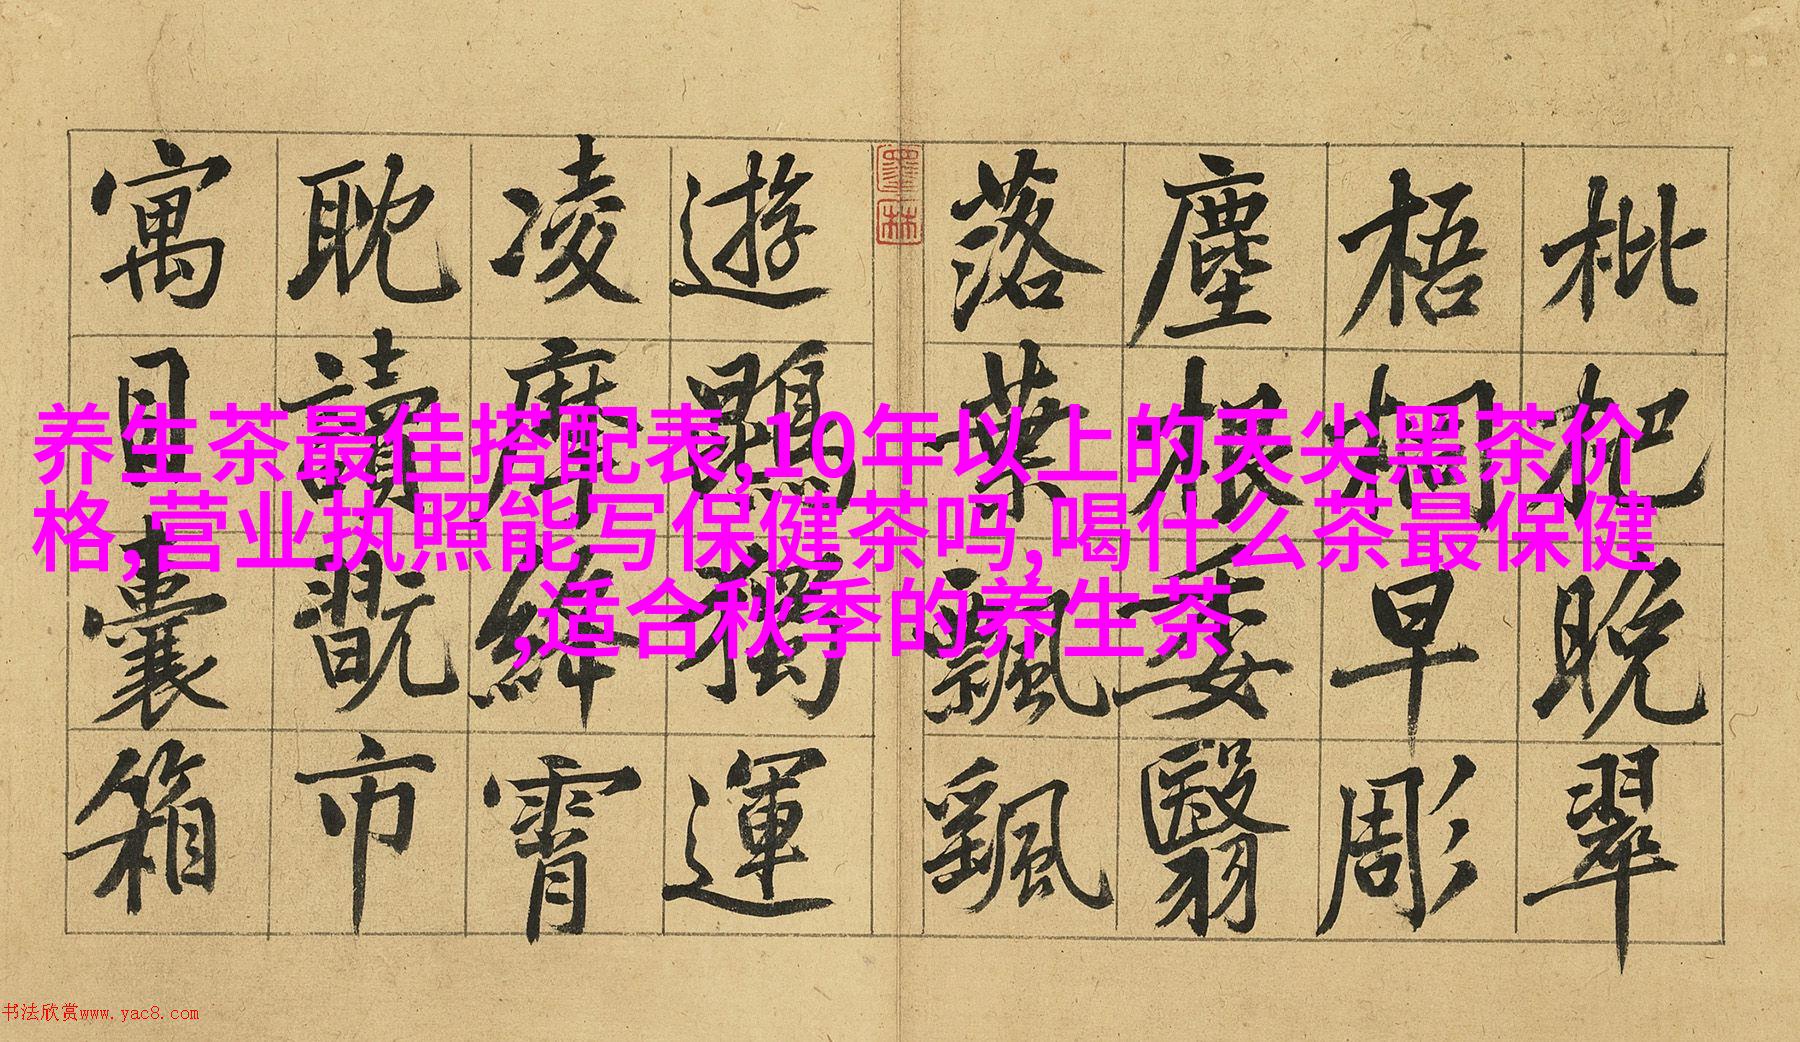 枇杷晚翠
梧桐早彫
塵根委翳
落葉飄颻
遊鵾獨運
凌摩絳霄
耽讀翫市
寓目囊箱
墨林
养生茶最佳搭配表,10年以上的天尖黑茶价
格,营业执照能写保健茶吗,喝什么茶最保健
,适合秋季的养生茶
书法欣赏www.yac8.com